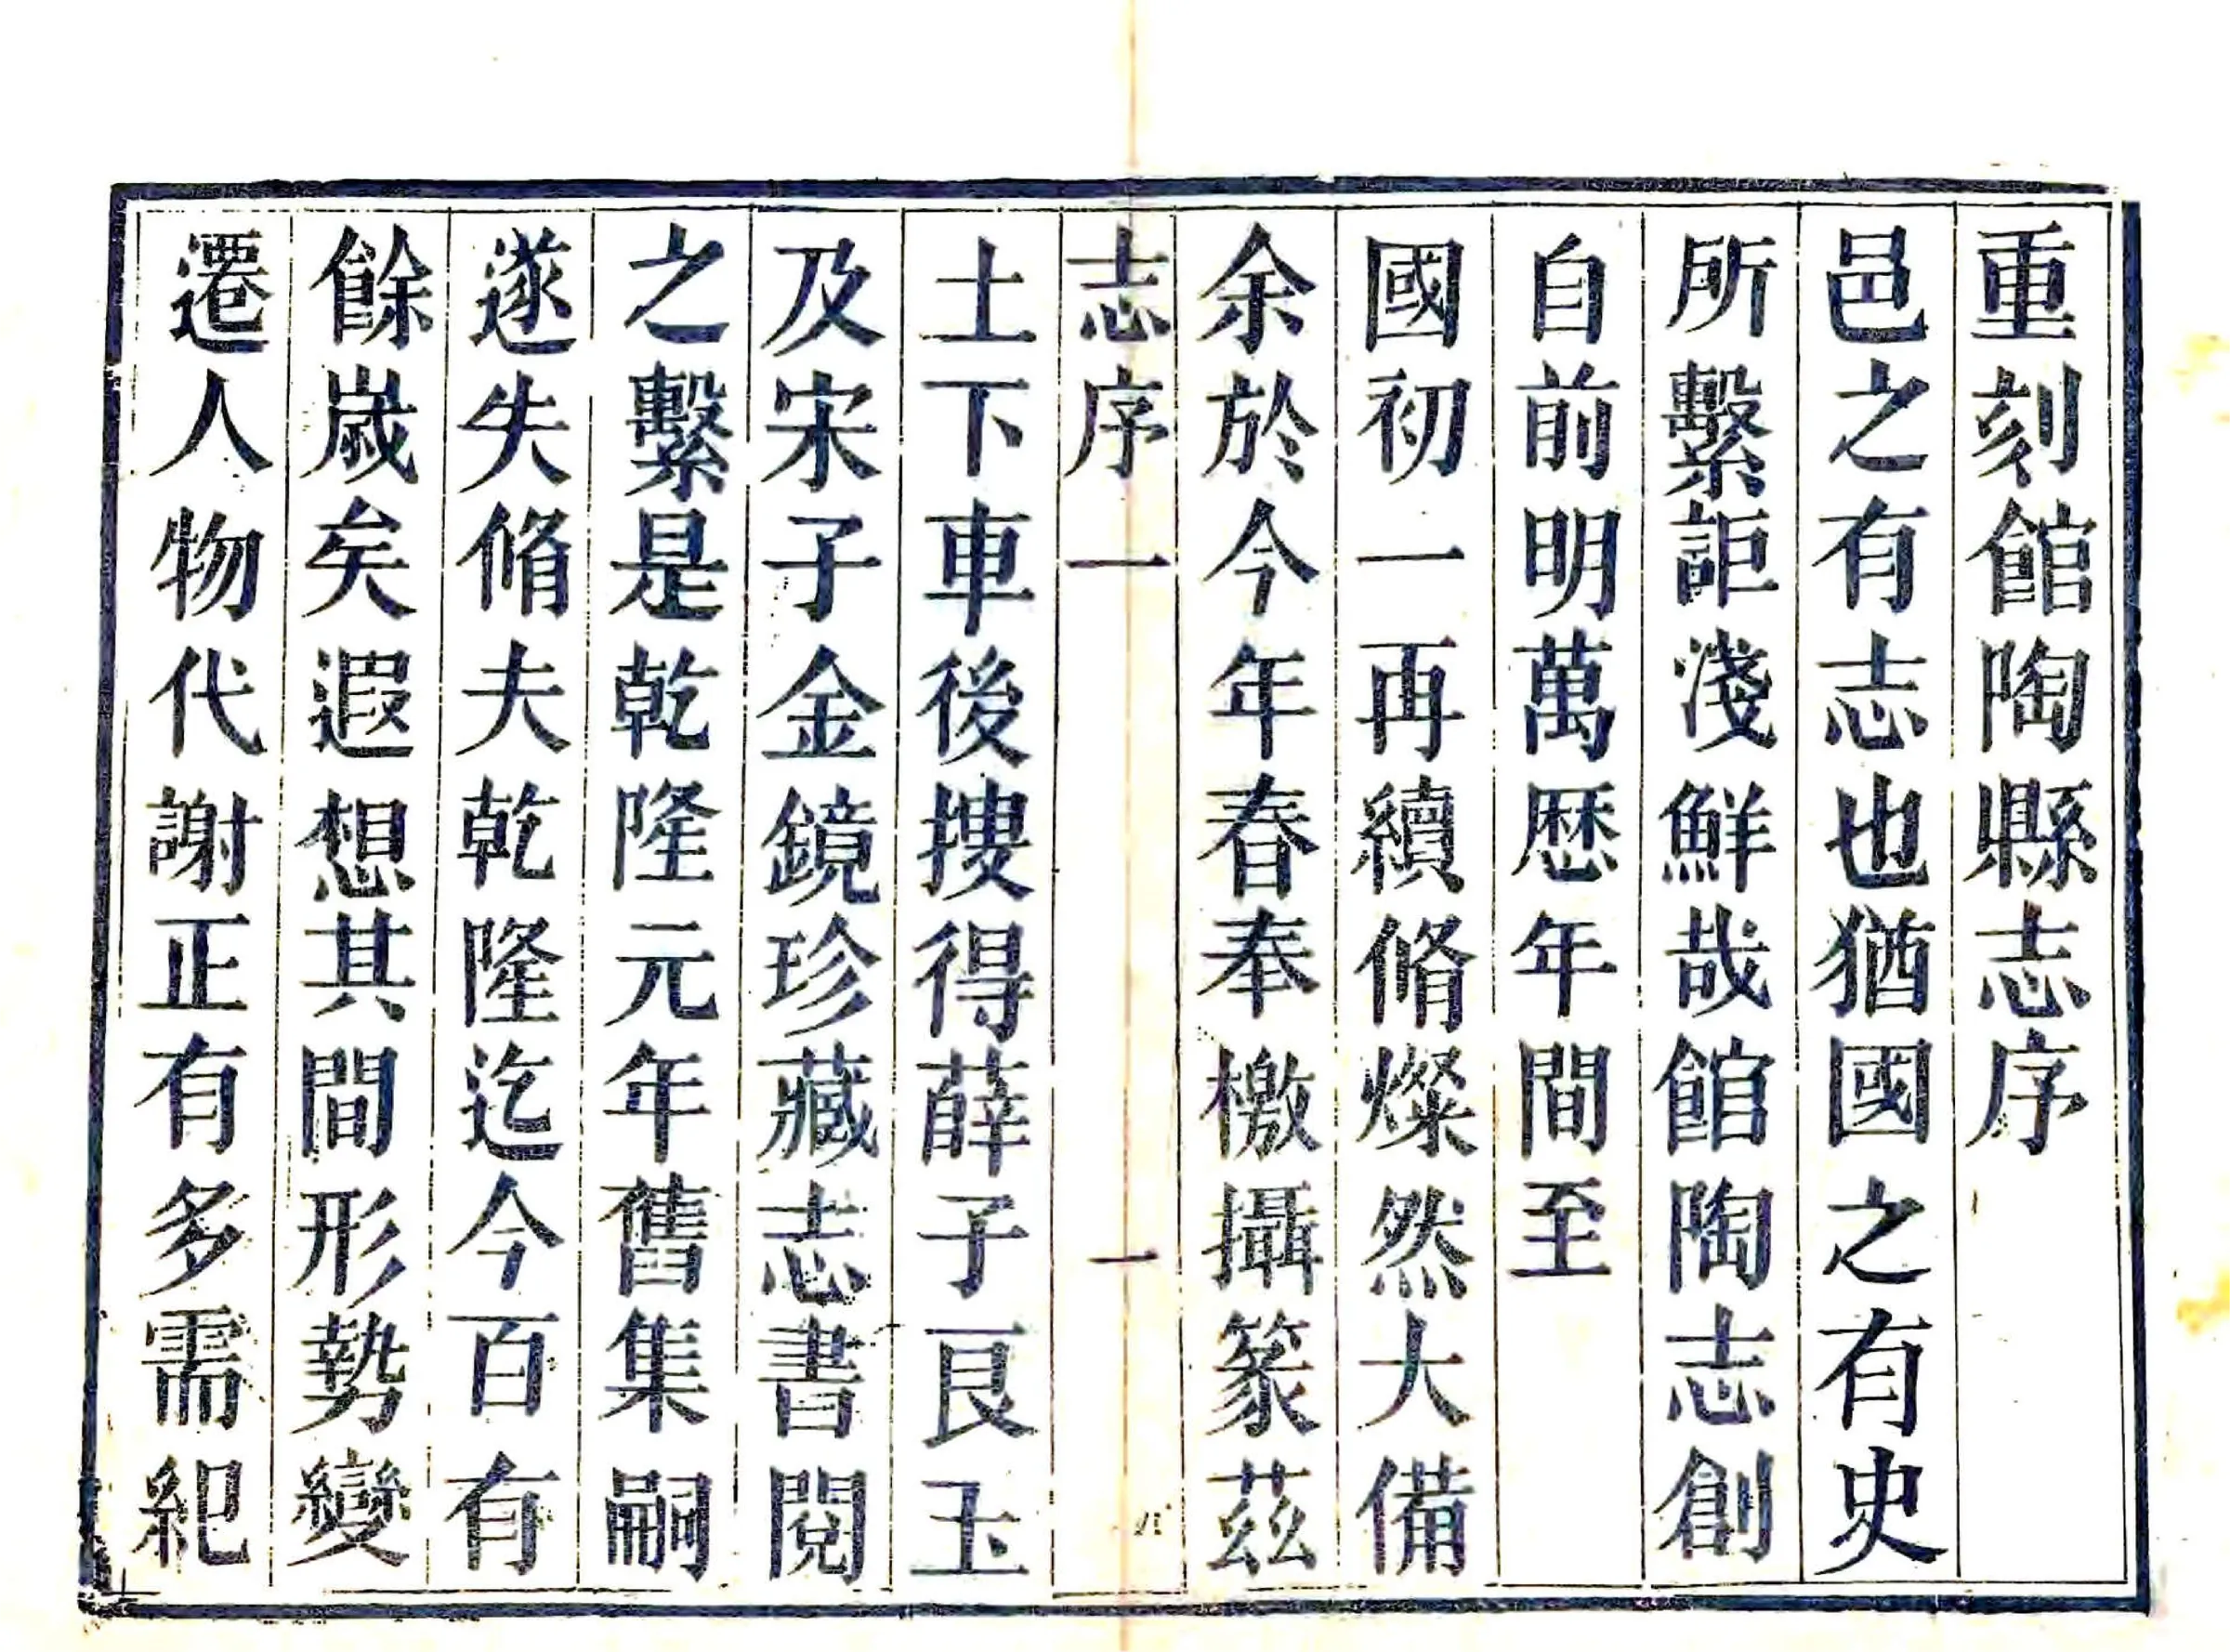 重刻館陶縣志序
邑之有志也猶國之有史
所繫詎淺鮮哉館陶志創
自前明萬厯年間至
國初一再續脩燦然大備
余於今年春奉檄攝篆茲
志序一
一
土下車後搜得薛子艮玉
及宋子金鏡珍藏志書閱
之繫是乾隆元年舊集嗣
遂失脩夫乾隆迄今百有
餘歲矣遐想其間形勢變
遷人物代謝正有多需紀